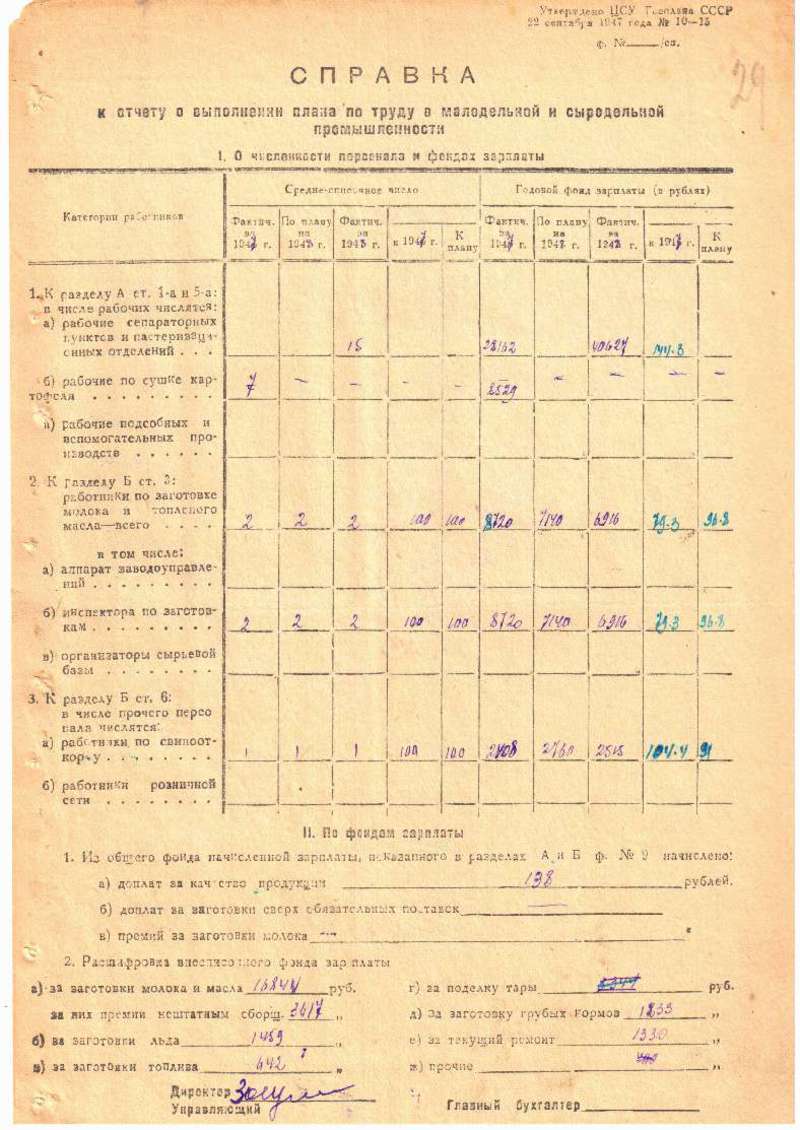 Утверждено ЦСУ Госплана СССР
22 сентября 1947 года № 10—15
ф. № /сп.
29
СПРАВКА
к отчету о выполнении плана по труду в маслодельной и сыродельной
промышленности
I. О численности персонала и фондах зарплаты
Категории работников
Средне-списочное число
Годовой фонд зарплаты (в рублях)
Фактич. за 1947 г.
По плану на 1948 г.
Фактич. за 1948 г.
к 1947 г.
К плану
Фактич. за 1947 г.
По плану на 1948 г.
Фактич. за 1948 г.
к 1947 г.
К плану
1. К разделу А ст. 1-а и 5-а:
в числе рабочих числятся:
а) рабочие сепараторных
пунктов и пастеризаци-
онных отделений . . . 15 28162 40627 144.3
б) рабочие по сушке кар-
тофеля . . . . . . . . . 7 — — — — 8529 — — — —
в) рабочие подсобных и
вспомогательных про-
изводств . . . . . .
2. К разделу Б ст. 3:
работники по заготовке
молока и топленого
масла—всего . . . . 2 2 2 100 100 8720 7140 6916 79.3 96.8
в том числе:
а) аппарат заводоуправле-
ний . . . . . . . . .
б) инспектора по заготов-
кам . . . . . . . . . 2 2 2 100 100 8720 7140 6916 79.3 96.8
в) организаторы сырьевой
базы . . . . . . . .
3. К разделу Б ст. 6:
в числе прочего персо
нала числятся:
а) работники по свиноот-
корму . . . . . . . . 1 1 1 100 100 2408 2760 2515 104.4 91
б) работники розничной
сети . . . . . . . . .
II. По фондам зарплаты
1. Из общего фонда начисленной зарплаты, показанного в разделах А и Б ф. № 9 начислено:
а) доплат за качество продукции 138 рублей.
б) доплат за заготовки сверх обязательных поставок —
в) премий за заготовки молока —
2. Расшифровка внесписочного фонда зарплаты
а) за заготовки молока и масла руб.
из них премии нештатным сборщ. 3617 „
б) за заготовки льда 1459 „
в) за заготовки топлива 642 „
г) за поделку тары руб.
д) за заготовку грубых кормов 1233 „
е) за текущий ремонт 1330 „
ж) прочие „
Директор
Управляющий
Главный бухгалтер